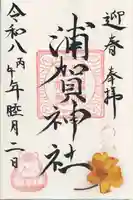 迎春奉拝
浦賀神社
令和八丙午年睦月二日